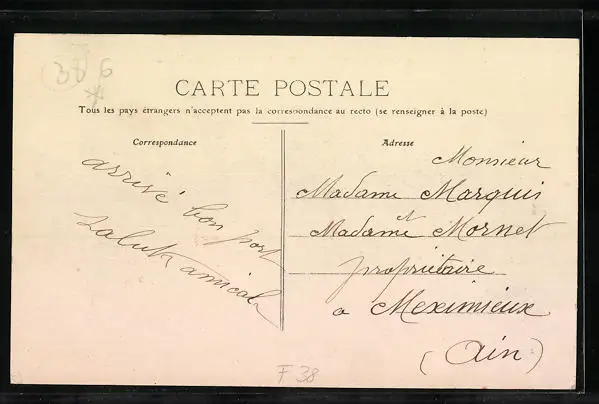 38 6
*
CARTE POSTALE
Tous les pays étrangers n'acceptent pas la correspondance au recto (se renseigner à la poste)
Correspondance
arrivé bon port
saluts amicals
Adresse
Monsieur
Madame Marquis
et
Madame Mornet
propriétaire
a Meximieux
(Ain)
F 38